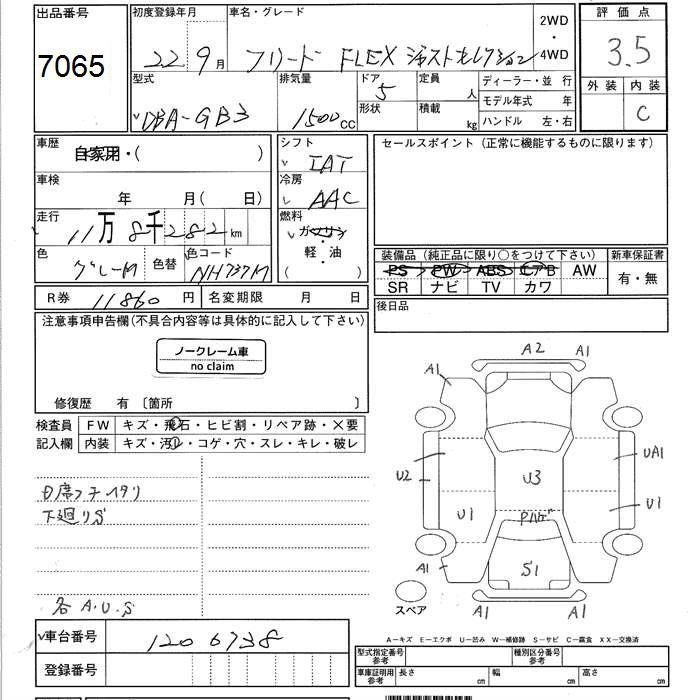 出品番号 初度登録年月 車名・グレード 2WD・4WD 評価点
7065 22 9月 フリード FLEX ジャストセレクション 3.5
外装 内装
C
型式 排気量 ドア 定員 ディーラー・並行
DBA-GB3 1500cc 5 人 モデル年式 年
形状 積載 kg ハンドル 左・右
車歴 自家用・( )
シフト IAT
セールスポイント (正常に機能するものに限ります)
車検 年 月( 日)
冷房 AAC
走行 11万8千282km
燃料 ガソリン・軽・油 ( )
色 グレーM 色替 色コード NH737M
装備品 (純正品に限り○をつけて下さい) 新車保証書
PS PW ABS エアB AW 有・無
SR ナビ TV カワ
R券 11860円 名変期限 月 日
後日品
注意事項申告欄(不具合内容等は具体的に記入して下さい)
ノークレーム車
no claim
修復歴 有 〔箇所 〕
検査員 FW キズ・飛石・ヒビ割・リペア跡・×要
記入欄 内装 キズ・汚レ・コゲ・穴・スレ・キレ・破レ
下廻りS
各A.U.S
A2 A1
A1
UA1
U2 U3
U1 U1
A1 S1
A1 A1
スペア
A−キズ E−エクボ U−凹み W−補修跡 S−サビ C−腐食 XX−交換済
車台番号 120 6738
登録番号
型式指定番号 参考 種別区分番号 参考
車庫証明用 参考 長さ cm 幅 cm 高さ cm